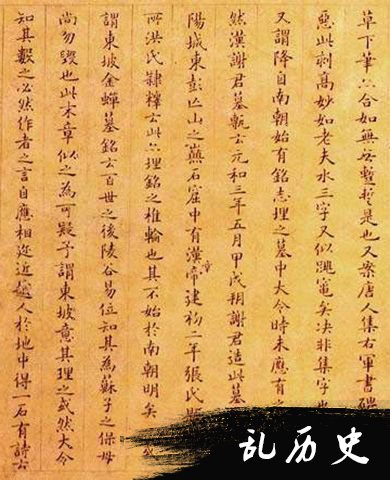 草下筆亦合如無安蹔是也又案唐人集右軍書碑
惡此刻高妙如老夫水三字又似蹴竈矣決非集字也
又謂降自南朝始有銘志埋之墓中大令時未應有之
然漢謝君墓甎云元和三年五月甲戌朔謝君造此墓
陽城東彭亾山之巔石窟中有漢章帝建初二年張氏題
所洪氏隸釋云此亦埋銘之椎輪也其不始於南朝明矣
謂東坡金蟬墓銘云百世之後陵谷易位知其為蘇子之保母
尚勿毀也此末章似之為可疑予謂東坡意其理之或然大令
知其數之必然作者之言自應相邇近越人於地中得一石有詩六
乱历史